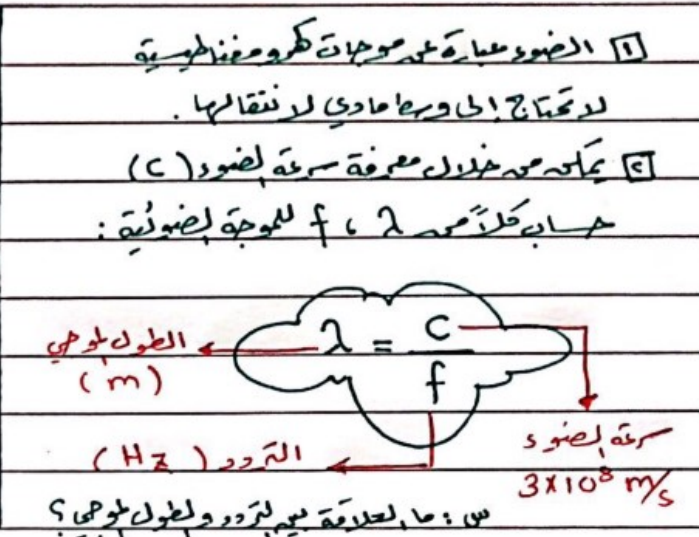 ١ الضوء عبارة عن موجات كهرومغناطيسية
لا تحتاج إلى وسط مادي لانتقالها .
٢ يمكن من خلال معرفة سرعة الضوء (C)
حساب كلاً من λ ، f للموجة الضوئية :
λ = C / f
الطول الموجي
(m)
التردد (Hz)
سرعة الضوء
3x10⁸ m/s
س : ما العلاقة بين التردد والطول الموجي ؟